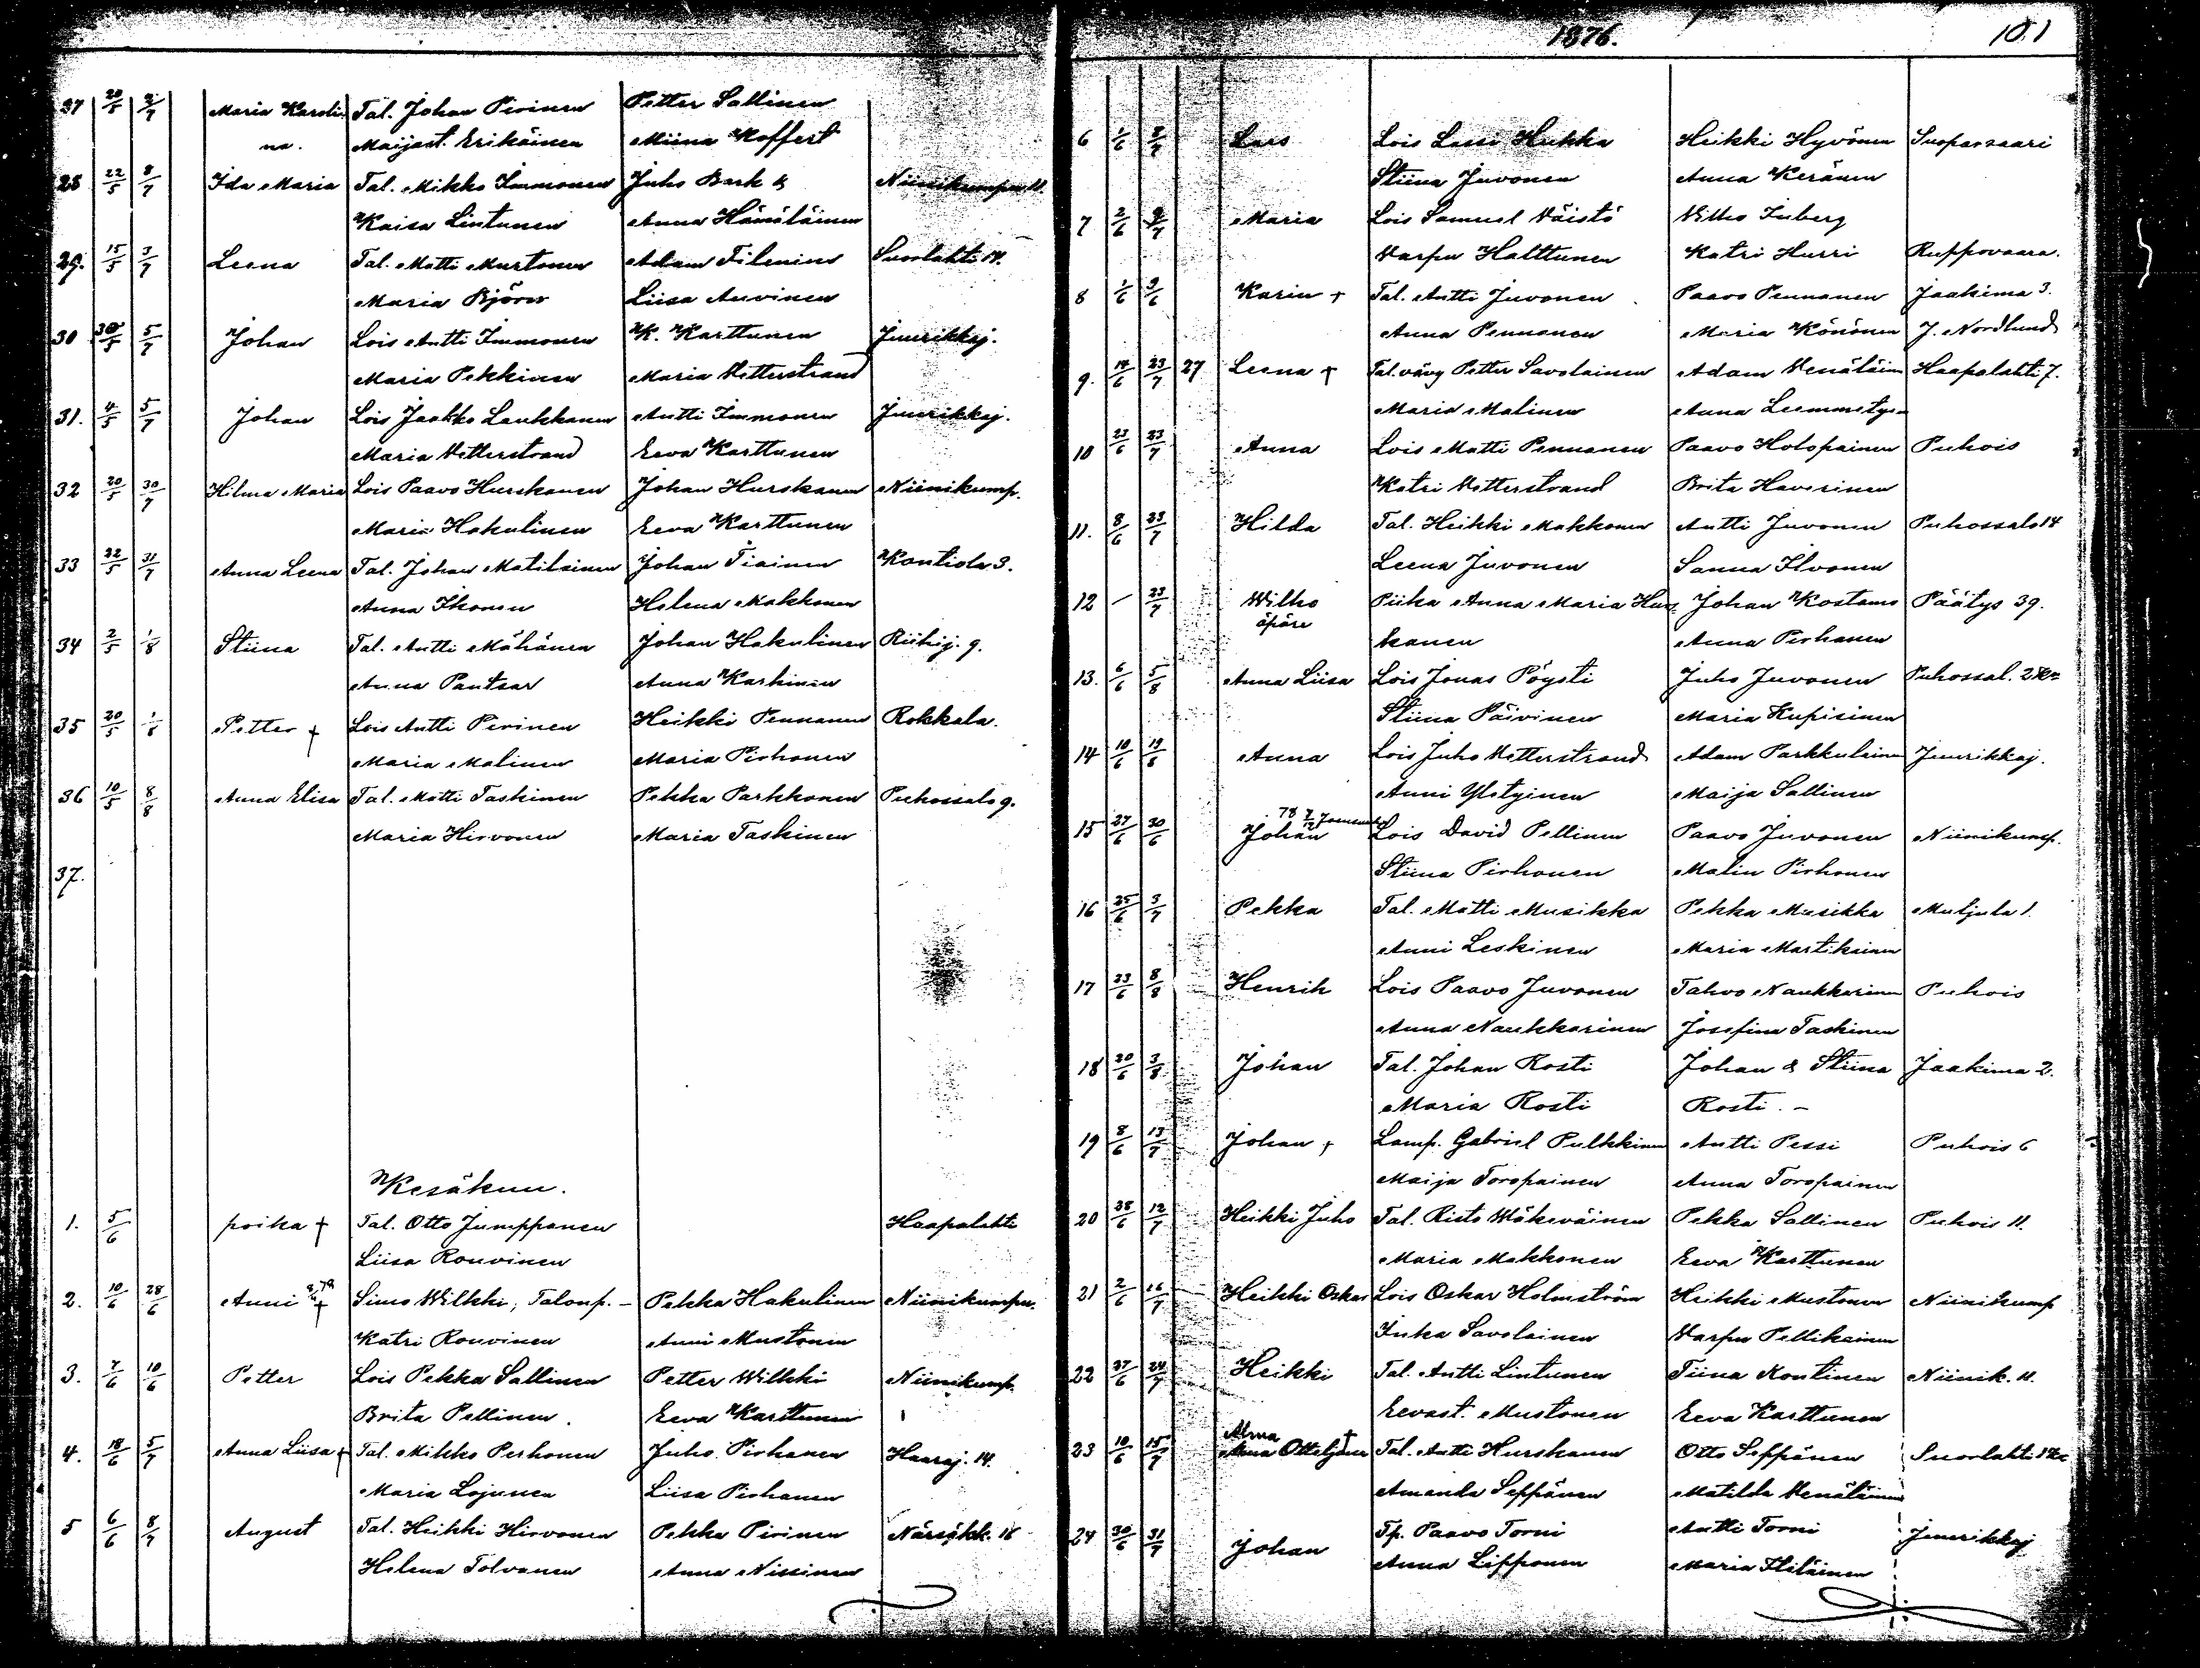 37 20/5 2/7 Maria Karoli- Tal. Johan Pirinen Petter Sallinen
na. Maijast. Erikäinen Miina Koffert
28 22/5 8/7 Ida Maria Tal. Mikko Immonen Juho Bark & Niinikumpu 11.
Kaisa Lintunen Anna Hämäläinen
29. 15/5 3/7 Leena Tal. Matti Murtonen Adam Filenius Suorlahti 14.
Maria Björn Liisa Auvinen
30 5/7 Johan Lois Antti Immonen K. Karttunen Juurikkaj.
Maria Pekkinen Maria Wetterstrand
31. 4/5 5/7 Johan Lois Jaakko Laukkanen Antti Immonen Juurikkaj.
Maria Wetterstrand Eeva Karttunen
32 20/5 30/7 Hilma Maria Lois Paavo Hurskanen Johan Hurskanen Niinikump.
Maria Hakulinen Eeva Karttunen
33 22/5 31/7 Anna Leena Tal. Johan Matilainen Johan Tiainen Kontiola 3.
Anna Ikonen Helena Makkonen
34 2/5 1/8 Stiina Tal. Antti Mähönen Johan Hakulinen Riihij. 9.
Anna Pantsar Anna Karhinen
35 20/5 1/8 Petter + Lois Antti Pirinen Heikki Pennanen Rokkala.
Maria Malinen Maria Pirhonen
36 10/5 8/8 Anna Elisa Tal. Matti Taskinen Pekka Parkkonen Puhossalo 9.
Maria Hirvonen Maria Taskinen
37.
Kesäkuu.
1. 5/6 poika + Tal. Otto Jumppanen Haapalahti
Liisa Rouvinen
2. 10/6 28/6 Anni + Simo Wilkki, Taloup. - Pekka Hakulinen Niinikumpu.
Katri Rouvinen Anni Mustonen
3. 7/6 10/6 Petter Lois Pekka Sallinen Petter Wilkki Niinikump.
Brita Pellinen. Eeva Karttunen
4. 18/6 5/7 Anna Liisa + Tal. Mikko Perhonen Juho Pirhonen Haaraj. 14.
Maria Lojunen Liisa Pirhonen
5 6/6 8/7 August Tal. Heikki Hirvonen Pekka Pirinen Närsäkk. 16
Helena Tolvanen Anna Nissinen
1876. 101
6 1/6 2/7 Lars Lois Lassi Hukka Heikki Hyvönen Suoparsaari
Stiina Juvonen Anna Keränen
7 2/6 2/7 Maria Lois Samuel Väistö Vilho Inberg
Varpu Halttunen Katri Hurri Ruppovaara.
8 1/6 3/6 Karin + Tal. Antti Juvonen Paavo Pennanen Jaakima 3.
Anna Pennanen Maria Könönen J. Nordlund
9. 14/6 23/7 27 Leena + Tal. vävy Petter Savolainen Adam Venäläinen Haapalahti 7.
Maria Malinen Anna Lemmetyn
10 23/6 23/7 Anna Lois Matti Pennanen Paavo Holopainen Puhois
Katri Wetterstrand Brita Haverinen
11. 8/6 23/7 Hilda Tal. Heikki Makkonen Antti Juvonen Puhossalo 14
Leena Juvonen Sanna Ilvonen
12 — 23/7 Wilho Piika Anna Maria Hurs- Johan Kostamo Päätys 39.
äpäre kanen Anna Pirhonen
13. 6/6 5/8 Anna Liisa Lois Jonas Pöysti Juho Juvonen Puhossal. 2
Stiina Päivinen Maria Kupiainen
14 10/6 19/6 Anna Lois Juho Wetterstrand Adam Parkkulainen Juurikkaj.
Anni Yletyinen Maija Sallinen
15 27/6 30/6 Johan Lois David Pellinen Paavo Juvonen Niinikump.
Stiina Pirhonen Malin Pirhonen
16 25/6 3/7 Pekka Tal. Matti Musikka Pekka Musikka Muljula 1.
Anni Leskinen Maria Martikainen
17 23/6 8/8 Henrik Lois Paavo Juvonen Tahvo Naukkarinen Puhois
Anna Naukkarinen Josefina Taskinen
18 20/6 3/8 Johan Tal. Johan Rosti Johan & Stiina Jaakima 2.
Maria Rosti Rosti. -
19 8/6 13/7 Johan + Lamp. Gabriel Pulkkinen Antti Pessi Puhois 6
Maija Toropainen Anna Toropainen
20 28/6 12/7 Heikki Juho Tal. Risto Wäkeväinen Pekka Sallinen Puhois 11.
Maria Makkonen Eeva Karttunen
21 2/6 16/7 Heikki Oskar Lois Oskar Holmström Heikki Mustonen Niinikump
Inka Savolainen Varpu Pellikainen
22 27/6 24/7 Heikki Tal. Antti Lintunen Tiina Kontinen Niinik. 11.
Eevast. Mustonen Eeva Karttunen
Alma
23 10/6 15/7 Otteljana + Tal. Antti Hurskanen Otto Seppänen Suorlahti
Amanda Seppänen Matilda Venäläinen
24 30/6 31/7 Johan Tp. Paavo Torni Antti Torni Juurikkaj
Anna Lipponen Maria Flöläinen